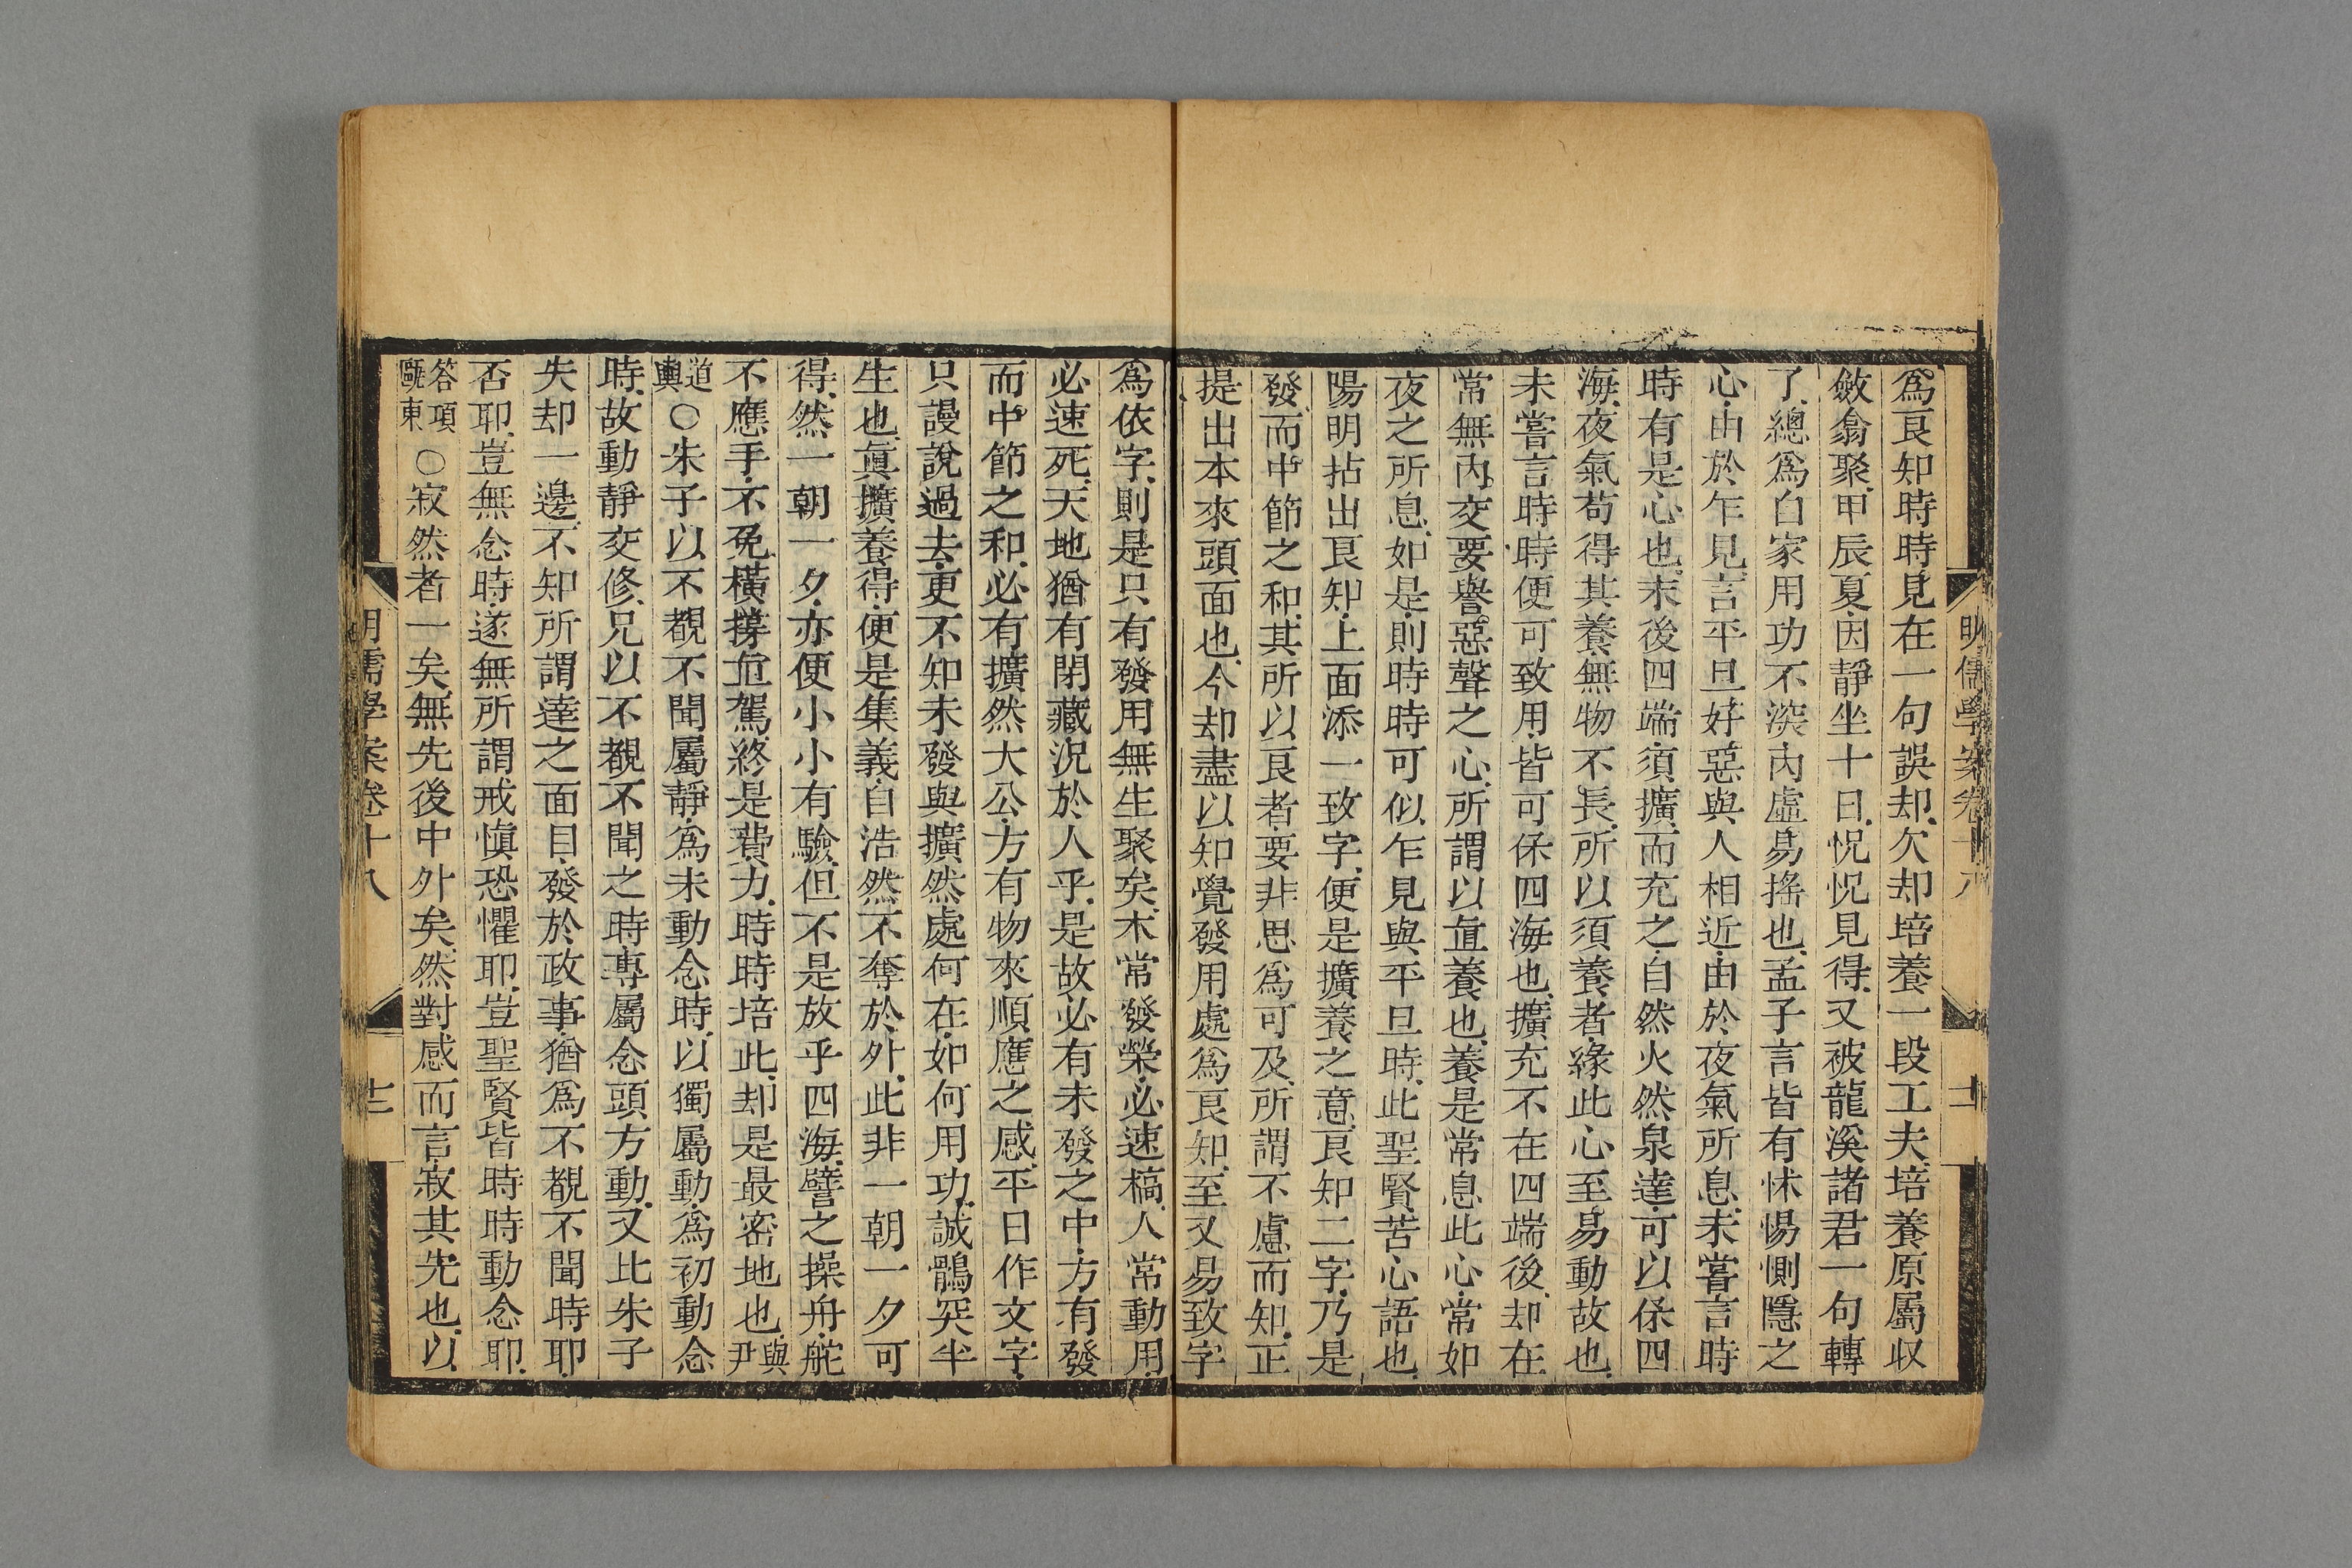 明儒學案卷十八
十二
爲良知時時見在一句誤却欠却培養一段工夫培養原屬収
斂翕聚甲辰夏因靜坐十日怳怳見得又被龍溪諸君一句轉
了總爲自家用功不深内虛易搖也孟子言皆有怵惕惻隱之
心由於乍見言平旦好惡與人相近由於夜氣所息未嘗言時
時有是心也末後四端須擴而充之自然火然泉達可以保四
海夜氣苟得其養無物不長所以須養者緣此心至易動故也
未嘗言時時便可致用皆可保四海也擴充不在四端後却在
常無内交要譽惡聲之心所謂以直養也養是常息此心常如
夜之所息如是則時時可似乍見與平旦時此聖賢苦心語也
陽明拈出良知上面添一致字便是擴養之意良知二字乃是
發而中節之和其所以良者要非思爲可及所謂不慮而知正
提出本來頭面也今却盡以知覺發用處爲良知至又易致字
爲依字則是只有發用無生聚矣木常發榮必速槁人常動用
必速死天地猶有閉藏況於人乎是故必有未發之中方有發
而中節之和必有擴然大公方有物來順應之感平日作文字
只謾說過去更不知未發與擴然處何在如何用功誠鶻突半
生也眞擴養得便是集義自浩然不奪於外此非一朝一夕可
得然一朝一夕亦便小小有驗但不是放乎四海譬之操舟舵
不應手不免橫撐直駕終是費力時時培此却是最密地也與尹
道輿○朱子以不覩不聞屬靜爲未動念時以獨屬動爲初動念
時故動靜交修兄以不覩不聞之時專屬念頭方動又比朱子
失却一邊不知所謂達之面目發於政事猶爲不覩不聞時耶
否耶豈無念時遂無所謂戒愼恐懼耶豈聖賢皆時時動念耶
答項甌東○寂然者一矣無先後中外矣然對感而言寂其先也以
明儒學案卷十八
十三